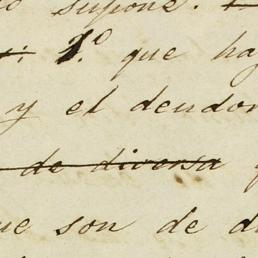 supone.
1.º que ha
y el deudor
de diversa
ue son de d